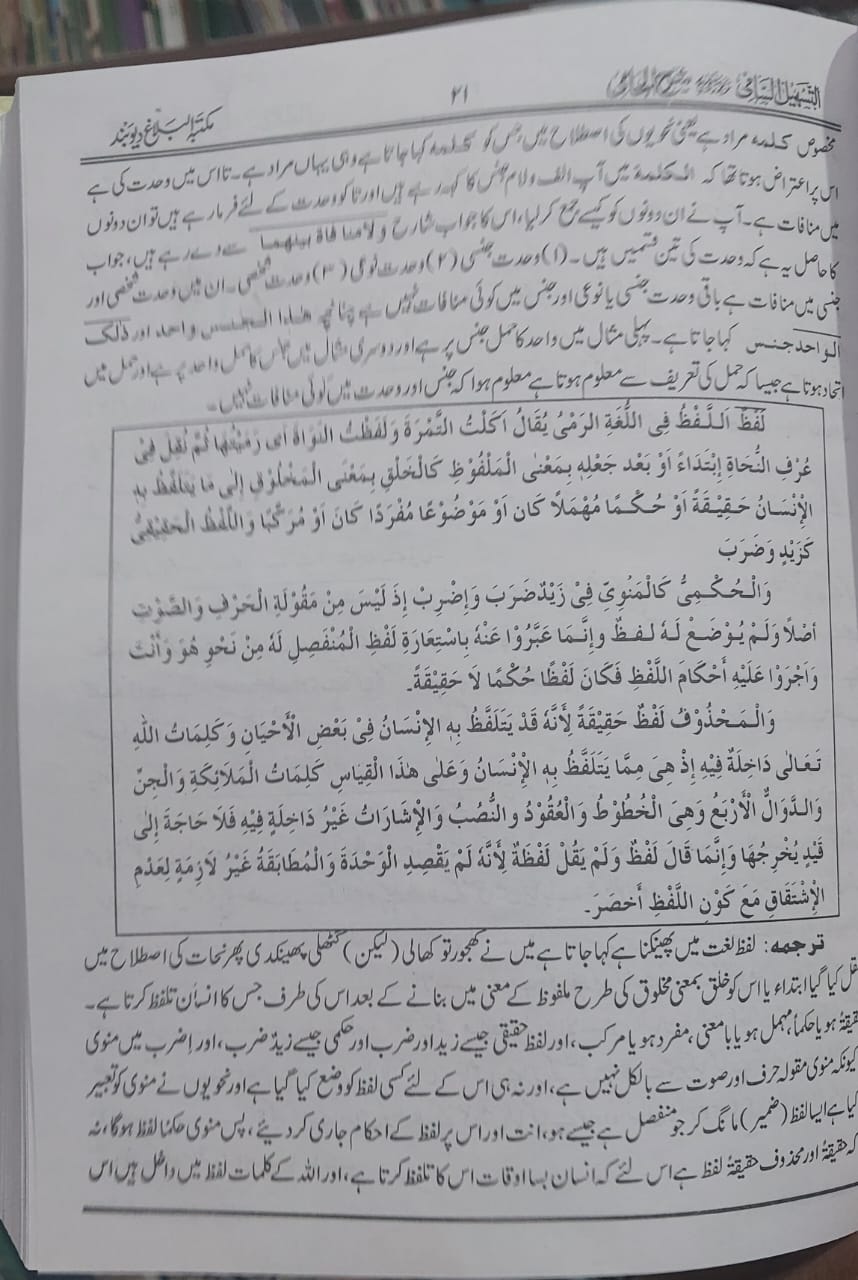 التسہیل السامی شرح الجامی
۲۱
مکتبۃ البلاغ دیوبند
مخصوص کلمہ مراد ہے یعنی نحویوں کی اصطلاح میں جس کو کلمہ کہا جاتا ہے وہی یہاں مراد ہے۔ تا اس میں وحدت کی ہے
اس پر اعتراض ہوتا تھا کہ الکلمة میں آپ الف ولام جنس کا کہہ رہے ہیں اور تا کو وحدت کے لئے فرمار ہے ہیں تو ان دونوں
میں منافات ہے۔ آپ نے ان دونوں کو کیسے جمع کر لیا، اس کا جواب شارح ولا منافاة بينهما سے دے رہے ہیں، جواب
کا حاصل یہ ہے کہ وحدت کی تین قسمیں ہیں۔ (۱) وحدت جنسی (۲) وحدت نوعی (۳) وحدت شخصی۔ ان میں وحدت شخصی اور
جنسی میں منافات ہے باقی وحدت جنسی یا نوعی اور جنس میں کوئی منافات نہیں ہے چنانچہ هذا الجنس واحد اور ذلك
الواحد جنس کہا جاتا ہے۔ پہلی مثال میں واحد کا حمل جنس پر ہے اور دوسری مثال میں جنس کا حمل واحد پر ہے اور حمل میں
اتحاد ہوتا ہے جیسا کہ حمل کی تعریف سے معلوم ہوتا ہے معلوم ہوا کہ جنس اور وحدت میں کوئی منافات نہیں۔
لَفْظٌ اَللَّفْظُ فِى اللُّغَةِ الرَمْىُ يُقَالُ اَكَلْتُ التَّمْرَةَ وَلَفَظْتُ النَوَاةَ اَى رَمَيْتُهَا ثُمَّ نُقِلَ فِى
عُرْفِ النُّحَاةِ إِبْتَدَاءً اَوْ بَعْدَ جَعْلِهِ بِمَعْنى الْمَلْفُوْظِ كَالْخَلْقِ بِمَعْنَى الْمَخْلُوْقِ إِلٰى مَا يَتَلَفَّظُ بِهِ
الْإِنْسَانُ حَقِيْقَةً اَوْ حُكْمًا مُهْمَلاً كَان اَوْ مَوْضُوْعًا مُفْرَدًا كَانَ اَوْ مُرَكَّبًا وَاللَّفْظُ الْحَقِيْقِىُّ
كَزَيْدٍ وَضَرَبَ
وَالْحُكْمِىُّ كَالْمَنْوِىِّ فِىْ زَيْدٌ ضَرَبَ وَإِضْرِبْ إِذْ لَيْسَ مِنْ مَقُوْلَةِ الْحَرْفِ وَالصَّوْتِ
أصْلاً وَلَمْ يُوْضَعْ لَهُ لَفظٌ وإنَّمَا عَبَّرُوْا عَنْهُ بِاسْتِعَارَةِ لَفْظِ الْمُنْفَصِلِ لَهُ مِنْ نَحْوِ هُوَ وَأنْتَ
وَاَجْرَوْا عَلَيْهِ أَحْكَامَ اللَّفْظِ فَكَانَ لَفْظًا حُكْمًا لَا حَقِيْقَةً۔
وَالْمَحْذُوْفُ لَفْظٌ حَقِيْقَةً لِأَنَّهُ قَدْ يَتَلَفَّظُ بِهِ الإِنْسَانُ فِىْ بَعْضِ الْأَحْيَانِ وَكَلِمَاتُ اللّٰهِ
تَعَالٰى دَاخِلَةٌ فِيْهِ إِذْ هِىَ مِمَّا يَتَلَفَّظُ بِهِ الْإِنْسَانُ وَعَلٰى هٰذَا الْقِيَاسِ كَلِمَاتُ الْمَلَائِكَةِ وَالْجِنِّ
وَالدَّوَالُّ الْأَرْبَعُ وَهِىَ الْخُطُوْطُ وَالْعُقُوْدُ والنُّصُبُ وَالْإِشَارَاتُ غَيْرُ دَاخِلَةٍ فِيْهِ فَلَا حَاجَةَ إِلٰى
قَيْدٍ يُخْرِجُهَا وَإِنَّمَا قَالَ لَفْظٌ وَلَمْ يَقُلْ لَفْظَةٌ لِأَنَّهُ لَمْ يَقْصِدِ الْوَحْدَةَ وَالْمُطَابَقَةُ غَيْرُ لَازِمَةٍ لِعَدْمِ
الْإِشْتَقَاقِ مَعَ كَوْنِ اللَّفْظِ أَخْصَرَ۔
ترجمہ: لفظ لغت میں پھینکنا ہے کہا جاتا ہے میں نے کھجور تو کھالی (لیکن) گٹھلی پھینکدی پھر نحات کی اصطلاح میں
نقل کیا گیا ابتداء یا اس کو خلق بمعنی مخلوق کی طرح ملفوظ کے معنی میں بنانے کے بعد اس کی طرف جس کا انسان تلفظ کرتا ہے۔
حقیقۃً ہو یا حکماً، مہمل ہو یا با معنی، مفرد ہو یا مرکب، اور لفظ حقیقی جیسے زید اور ضرب اور حکمی جیسے زیدٌ ضرب، اور اِضرب میں منوی
کیونکہ منوی مقولہ حرف اور صوت سے بالکل نہیں ہے، اور نہ ہی اس کے لئے کسی لفظ کو وضع کیا گیا ہے اور نحویوں نے منوی کو تعبیر
کیا ہے ایسا لفظ (ضمیر) مانگ کر جو منفصل ہے جیسے ہو، انت اور اس پر لفظ کے احکام جاری کر دیئے، پس منوی حکمًا لفظ ہوگا، نہ
کہ حقیقۃً اور محذوف حقیقۃً لفظ ہے اس لئے کہ انسان بسا اوقات اس کا تلفظ کرتا ہے، اور اللہ کے کلمات لفظ میں داخل ہیں اس